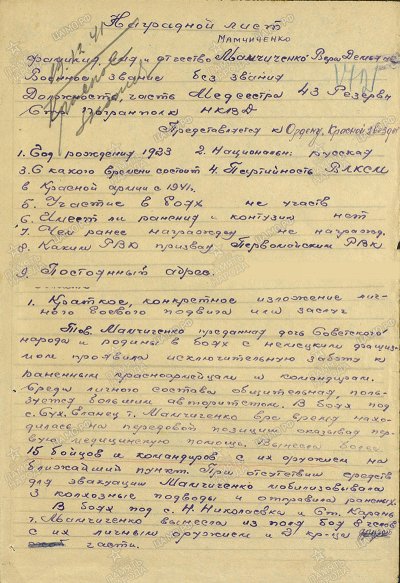 Наградной лист
МАМЧИЧЕНКО
Фамилия, имя и отчество Мамчиченко Вера
Военное звание без звания
Должность, часть Медсестра 43 Резервн
Стр. погранполка НКВД
Представляется к Ордену "Красная Звезда"
1. Год рождения 1923 2. Национальн. русская
3. С какого времени состоит 4. Партийность ВЛКСМ
в Красной армии с 1941 г.
5. Участие в боях не участв
6. Имеет ли ранения и контузии нет
7. Чем ранее награжден не награжд.
8. Каким РВК призван Первомайским РВК
9. Постоянный адрес.
1. Краткое, конкретное изложение лич-
ного боевого подвига или заслуг
Тов. Мамчиченко преданная дочь Советского
народа и родины в боях с немецким фашиз-
мом проявила исключительную заботу к
раненным красноармейцам и командирам.
Среди личного состава общительная, поль-
зуется большим авторитетом. В боях под
с. Сух. Еланец т. Мамчиченко все время нахо-
дилась на передовой позиции оказывая пер-
вую медицинскую помощь. Вынесла более
15 бойцов и командиров с их оружием на
ближайший пункт. При отсутствии средств
для эвакуации Мамчиченко мобилизовывала
3 колхозные подводы и отправила раненых.
В боях под с. Н. Николаевка и Ст. Карань
т. Мамчиченко вынесла из поля боя 8 челов
с их личным оружием и
части.